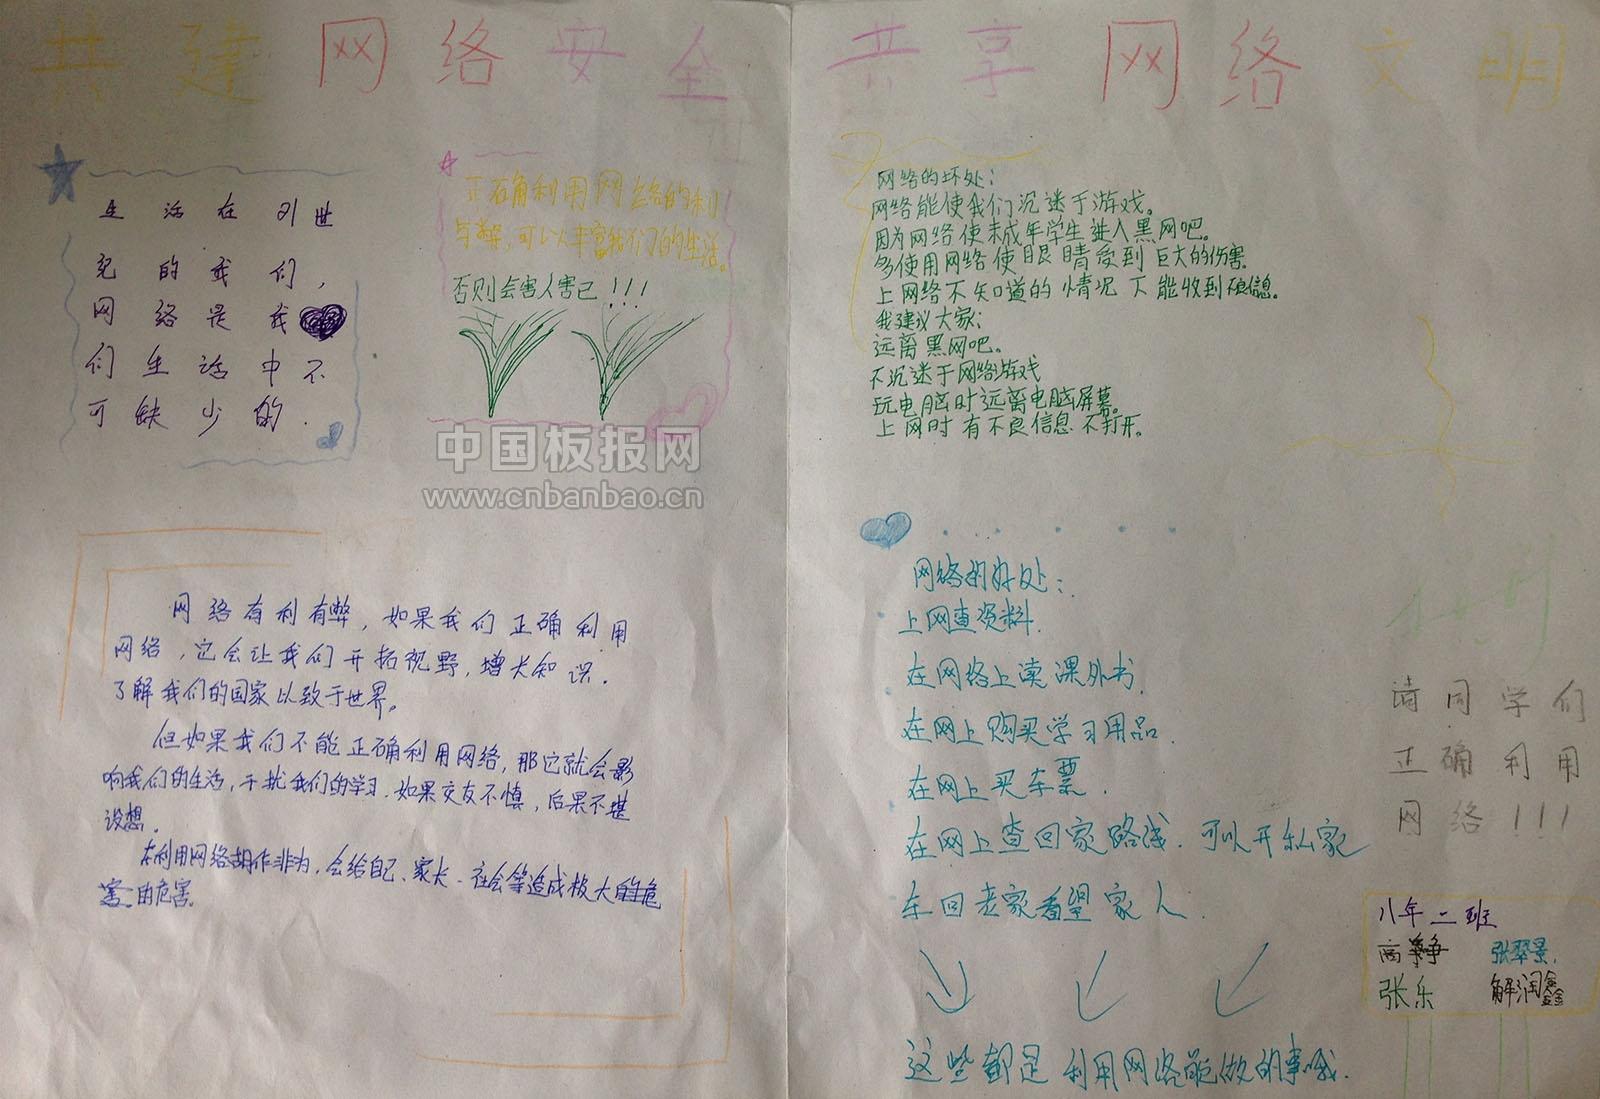 共建网络安全 共享网络文明
生活在21世
纪的我们，
网络是我
们生活中不
可缺少的.
正确利用网络的利
与弊，可以丰富我们的生活。
否则会害人害己!!!
中国板报网
www.cnbanbao.cn
网络有利有弊，如果我们正确利用
网络，它会让我们开拓视野，增长知识.
了解我们的国家以致于世界。
但如果我们不能正确利用网络，那它就会影
响我们的生活，干扰我们的学习.如果交友不慎，后果不堪
设想.
在利用网络胡作非为，会给自己、家长、社会等造成极大的危
害的危害.
网络的坏处：
网络能使我们沉迷于游戏。
因为网络使未成年学生进入黑网吧。
多使用网络使眼睛受到巨大的伤害.
上网络不知道的情况下能收到不良信息.
我建议大家：
远离黑网吧。
不沉迷于网络游戏
玩电脑时远离电脑屏幕。
上网时有不良信息不打开。
网络的好处：
上网查资料.
在网络上读课外书.
在网上购买学习用品.
在网上买车票.
在网上查回家路线.可以开私家
车回老家看望家人.
这些都是利用网络能做的事哦.
请同学们
正确利用
网络!!!
八年二班
高 张翠景.
张乐 解润鑫